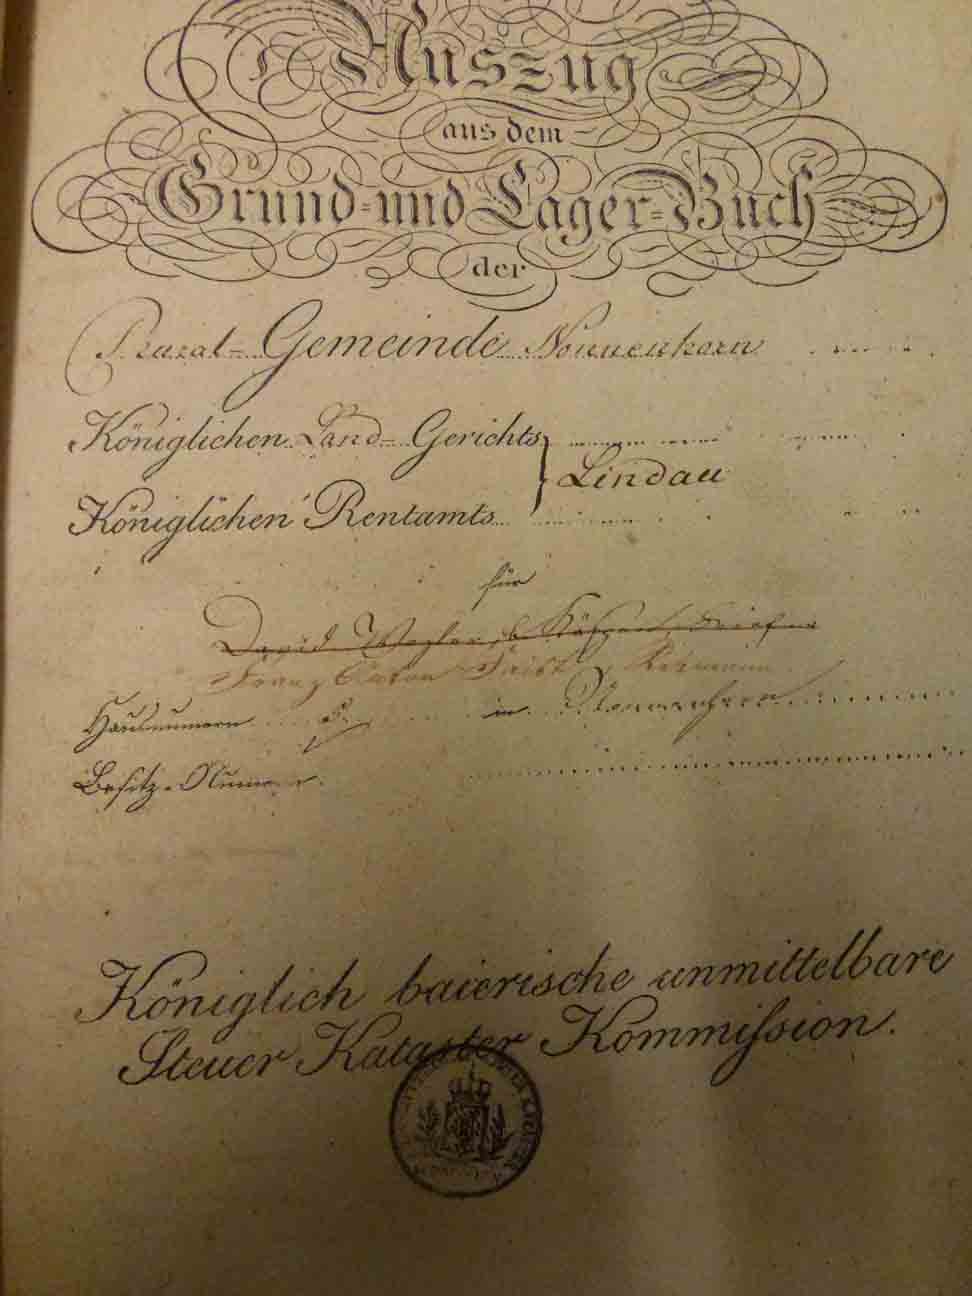 Auszug
aus dem
Grund- und Lager-Buch
der
Rural-Gemeinde Nonnenhorn
Königlichen Land-Gerichts
Lindau
Königlichen Rentamts
für
David
Franz Anton
Hausnummern 5. in Nonnenhorn
Besitz-Nummer.
Königlich baierische unmittelbare
Steuer Kataster Kommißion.